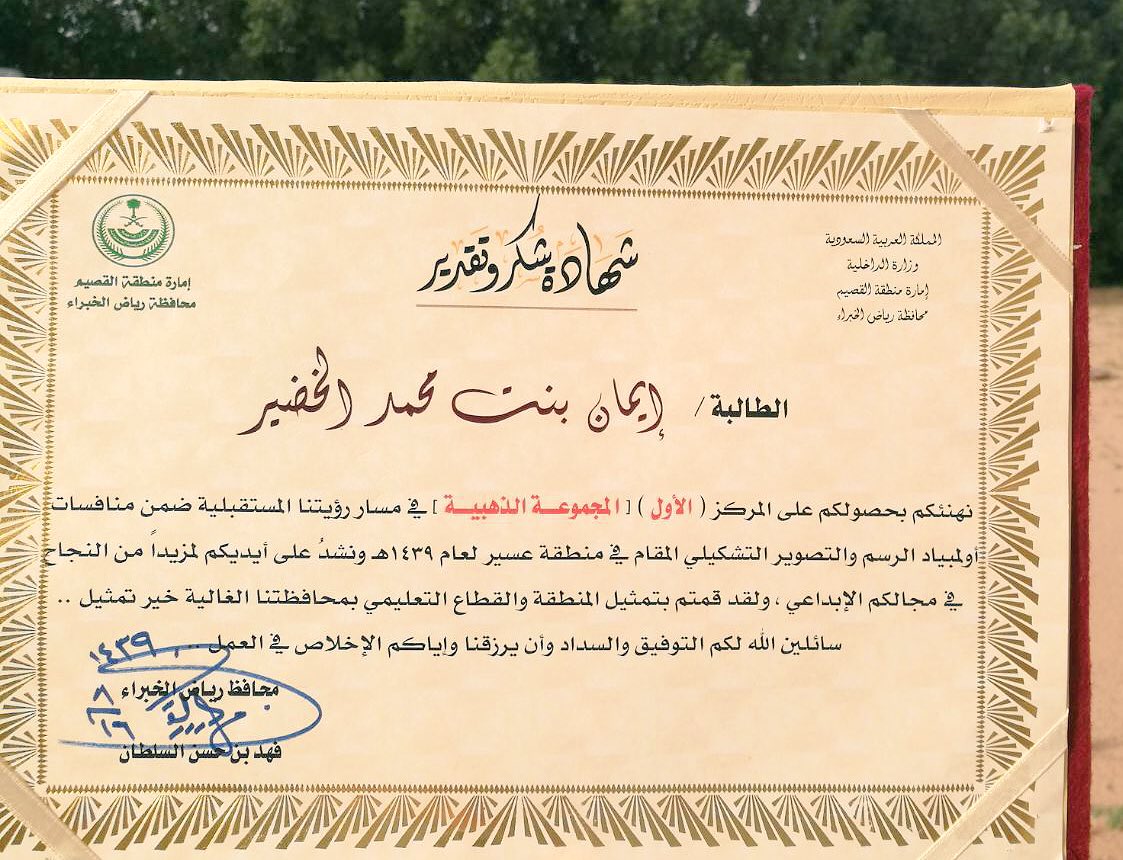 المملكة العربية السعودية
وزارة الداخلية
إمارة منطقة القصيم
محافظة رياض الخبراء
شهادة شكر وتقدير
إمارة منطقة القصيم
محافظة رياض الخبراء
الطالبة / إيمان بنت محمد الخضير
نهنئكم بحصولكم على المركز ( الأول ) [ المجموعة الذهبية ] في مسار رؤيتنا المستقبلية ضمن منافسات
أولمبياد الرسم والتصوير التشكيلي المقام في منطقة عسير لعام ١٤٣٩هـ ونشدُ على أيديكم لمزيداً من النجاح
في مجالكم الإبداعي ، ولقد قمتم بتمثيل المنطقة والقطاع التعليمي بمحافظتنا الغالية خير تمثيل ..
سائلين الله لكم التوفيق والسداد وأن يرزقنا وإياكم الإخلاص في العمل ...
١٤٣٩
محافظ رياض الخبراء
٨
١٦
فهد بن حسن السلطان